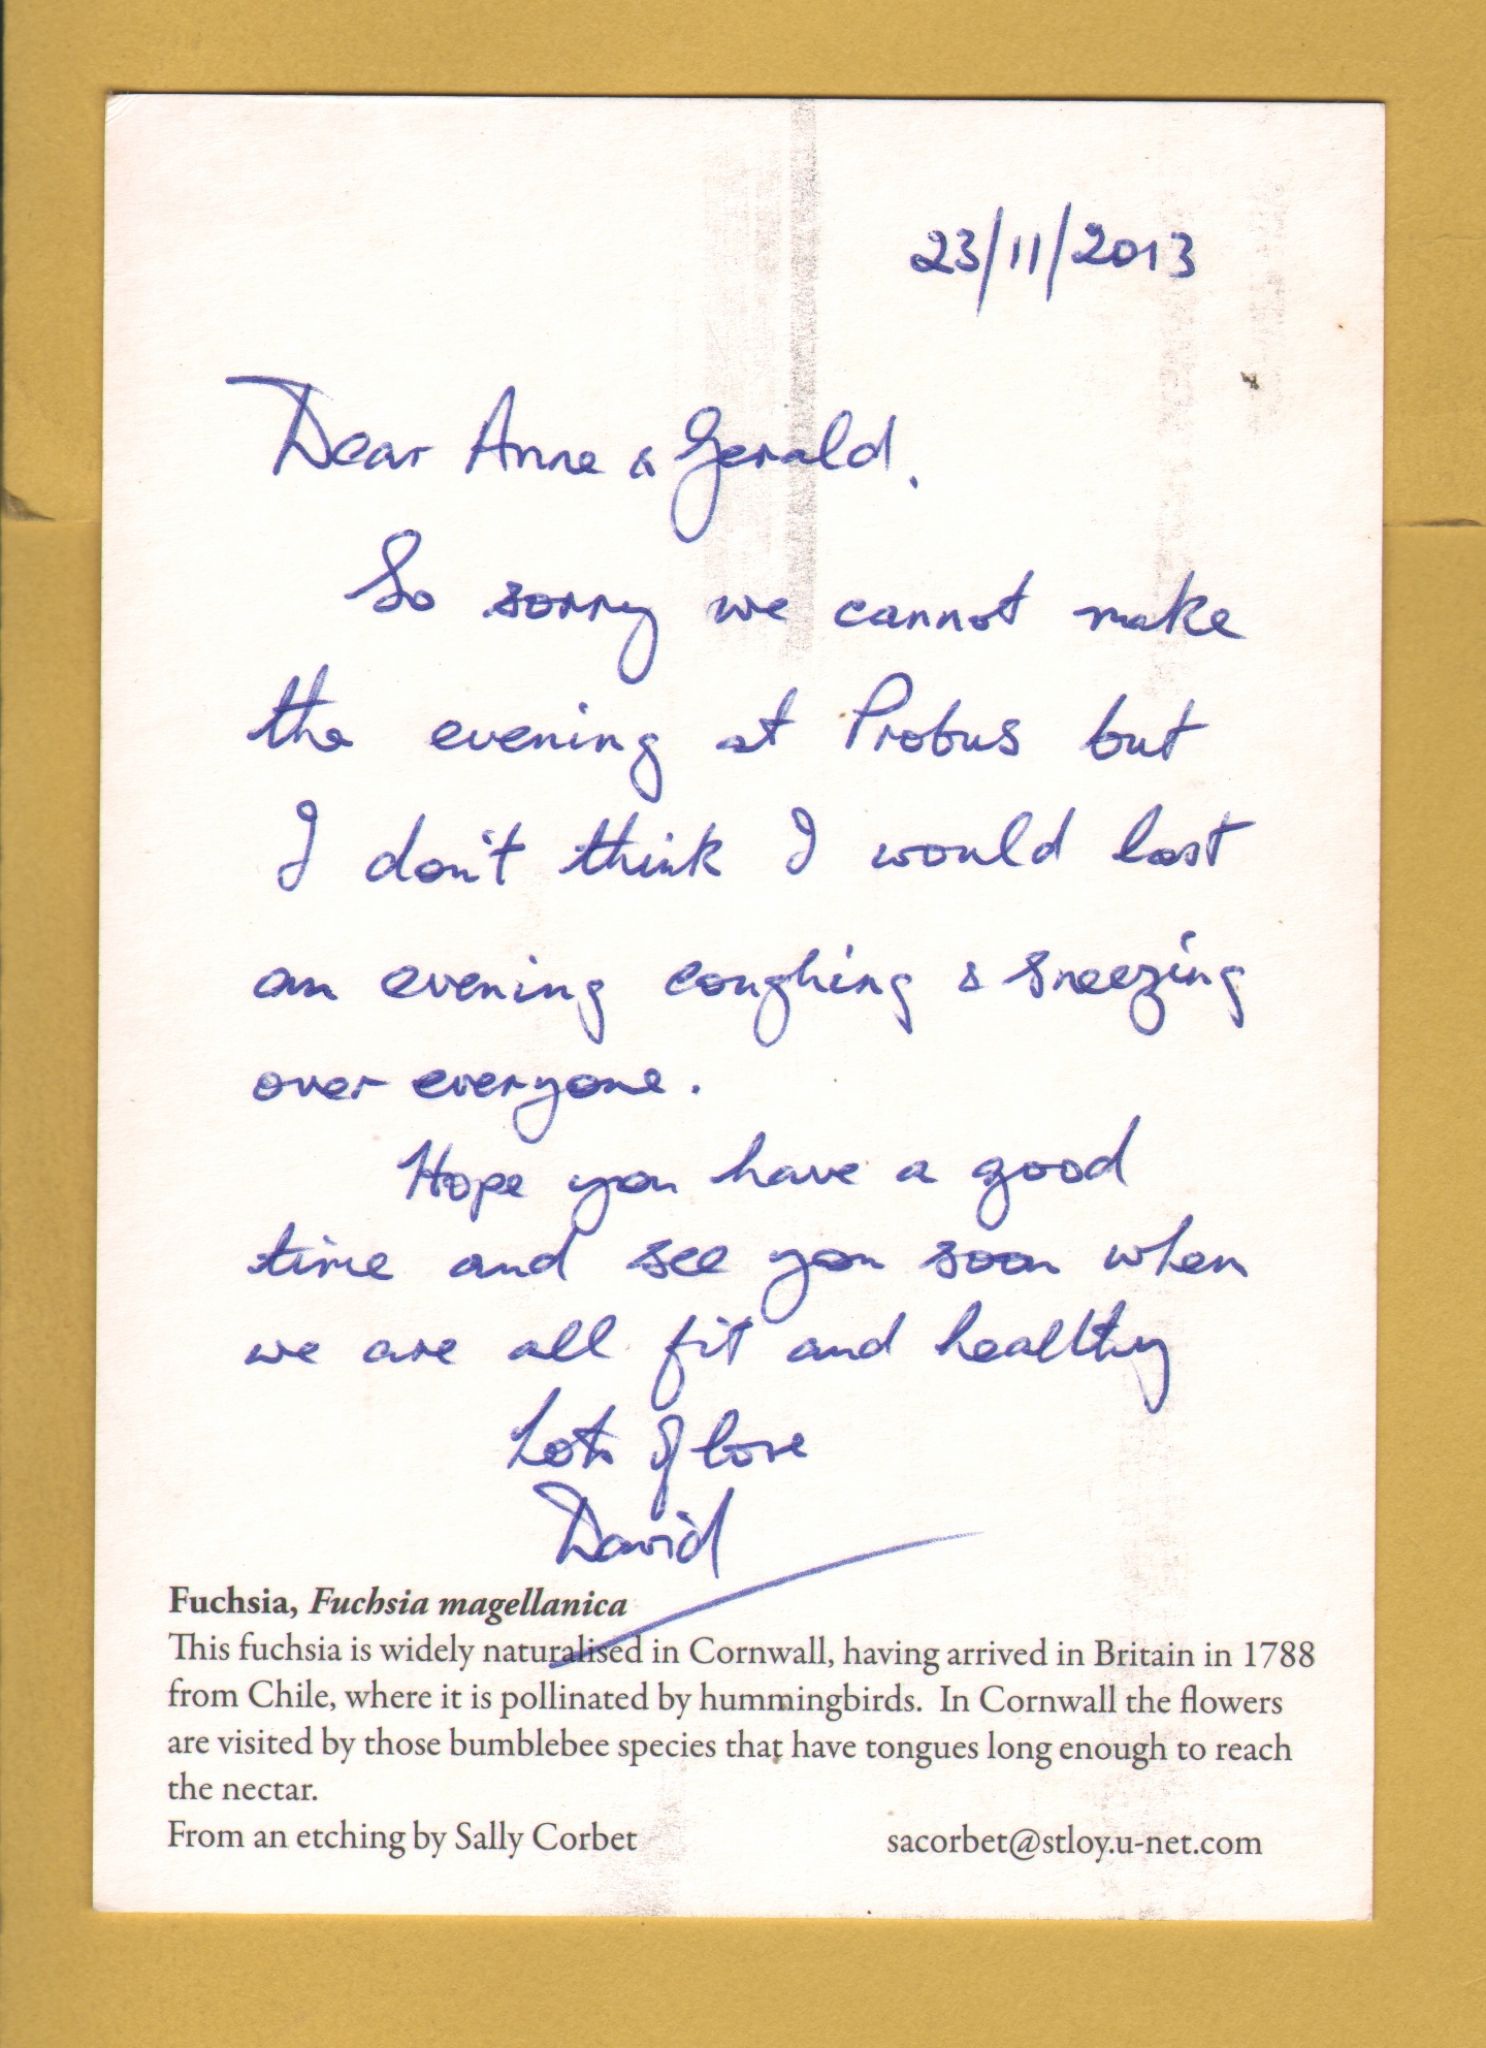 23/11/2013
Dear Anne & Gerald.
So sorry we cannot make
the evening at Probus but
I don't think I would last
an evening coughing & sneezing
over everyone.
Hope you have a good
time and see you soon when
we are all fit and healthy
Lots of love
David
Fuchsia, Fuchsia magellanica
This fuchsia is widely naturalised in Cornwall, having arrived in Britain in 1788
from Chile, where it is pollinated by hummingbirds. In Cornwall the flowers
are visited by those bumblebee species that have tongues long enough to reach
the nectar.
From an etching by Sally Corbet sacorbet@stloy.u-net.com